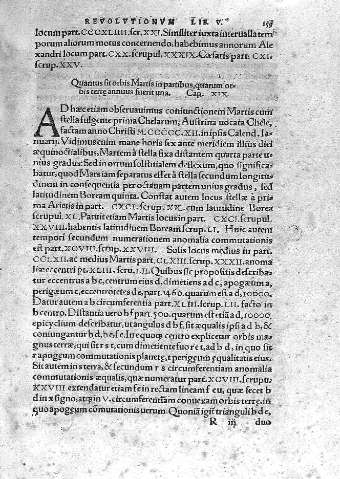 REVOLVTIONVM LIB. V.
locum part. CCXLIIII. scr. XXI. Similiter iuxta interualla tem
porum aliorum motus concernendo, habebimus annorum Ale
xandri locum part. CXX. scrup. XXXIX. Cæsaris part. CXI.
scrup. XXV.
Quantus sit orbis Martis in partibus, quarum or-
bis terræ annuus fuerit una. Cap. XIX.
AD hæc etiam obseruauimus coniunctionem Martis cum
stella fulgente prima Chelarum, Austrina uocata Chele,
factam anno Christi M.CCCCC.XII. in ipsis Calend. Ia-
nuarij. Vidimus cum mane horis sex ante meridiem illius diei
æquinoctialibus, Martem à stella fixa distantem quarta parte u-
nius gradus: Sed in ortum solstitialem deflexo, quo significa-
batur, quod Mars iam separatus esset à stella secundum longitu-
dinem in consequentia per octauam partem unius gradus, sed
latitudinem Boream quinta. Constat autem locus stellæ à pri-
ma Arietis in part. CXCI. scrup. XX. cum latitudine Borea
scrupul. XL. Patuit etiam Martis locus in part. CXCI. scrup.
XXVIII. habentis latitudinem Boream scrup. LI. Huic autem
tempori secundum numerationem anomalia commutationis
est part. XCVIII. scrup. XXVIII. Solis locus medius in part.
CCLXII. ac medius Martis part. CLXIII. scrup. XXXII. anoma
lia eccentri pt. XLIII. scru. LII. Quibus sic propositis describa-
tur eccentrus a b c, centrum eius d, dimetiens a d c, apogæum a,
perigæum c, eccentrotes d e, part. 1460. quarum est a d, 10000.
Datur autem a b circumferentia part. XLIII. scrup. LII. facto in
b centro. Distantia uero b f part. 500. quarum est etiam a d, 10000.
epicyclium describatur, ut angulus d b f, sit æqualis ipsi a d b, &
coniungantur b d, b e, f e. In e quoque centro explicetur orbis ma-
gnus terræ, qui sit r s t, cum dimetiente suo r e t, ad b d, in quo sit
r apogæum commutationis planetæ, t perigæum æqualitatis eius.
Sit autem in s terra, & secundum r s circumferentiam anomalia
commutationis æqualis, quæ numeratur part. XCVIII. scrup.
XXVIII extendatur etiam f e in rectam lineam f e u, quæ secet b
d in x signo, atque in u, circumferentiam conuexam orbis terræ, in
quo apogæum commutationis uerum. Quoniam igitur trianguli b d e,
R iij duo